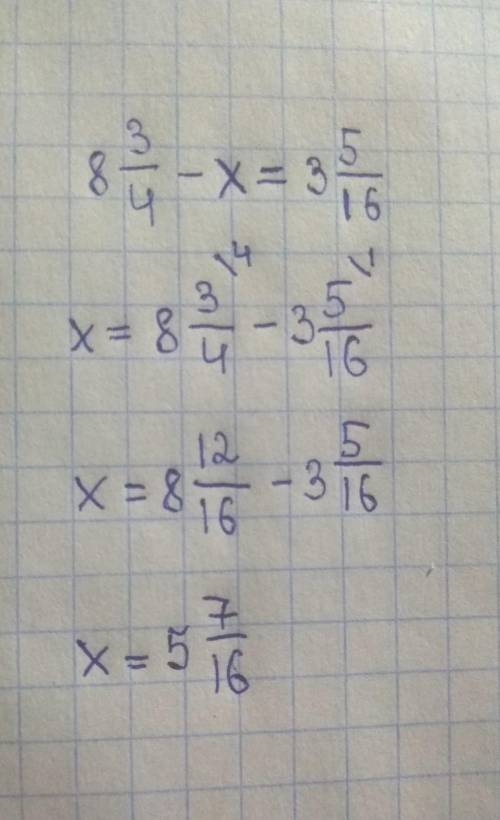 8 3/4 - x = 3 5/16
x = 8 3/4 \4 - 3 5/16 \1
x = 8 12/16 - 3 5/16
x = 5 7/16